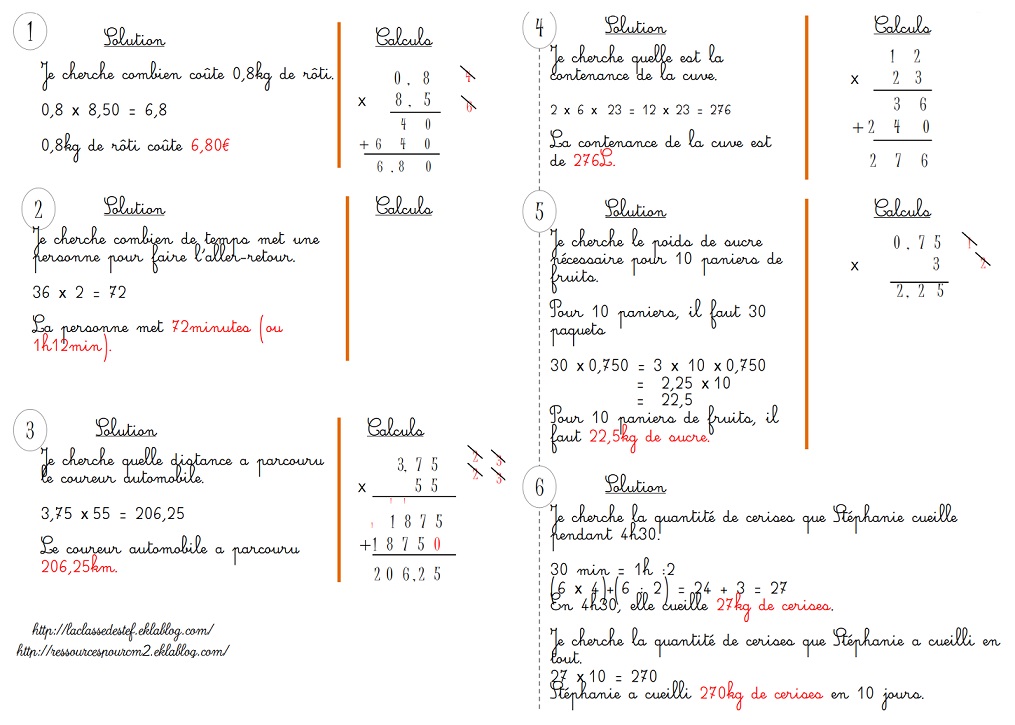 1
Solution
Calculs
Je cherche combien coûte 0,8kg de rôti.
0,8 x 8,50 = 6,8
0,8kg de rôti coûte 6,80€
0,8
4
x 8,5
0
4 0
+6 4 0
6,8 0
2
Solution
Calculs
Je cherche combien de temps met une
personne pour faire l'aller-retour.
36 x 2 = 72
La personne met 72minutes (ou
1h12min).
3
Solution
Calculs
Je cherche quelle distance a parcouru
le coureur automobile.
3,75 x 55 = 206,25
Le coureur automobile a parcouru
206,25km.
3,75
2 3
2 3
x 55
1 1
1 1875
+18750
206,25
http://laclassedestef.eklablog.com/
http://ressourcespourcm2.eklablog.com/
4
Solution
Calculs
Je cherche quelle est la
contenance de la cuve.
2 x 6 x 23 = 12 x 23 = 276
La contenance de la cuve est
de 276L.
1 2
x 2 3
3 6
+2 4 0
2 7 6
5
Solution
Calculs
Je cherche le poids de sucre
nécessaire pour 10 paniers de
fruits.
Pour 10 paniers, il faut 30
paquets
30 x 0,750 = 3 x 10 x 0,750
= 2,25 x 10
= 22,5
Pour 10 paniers de fruits, il
faut 22,5kg de sucre.
0,75
1
2
x 3
2,25
6
Solution
Je cherche la quantité de cerises que Stéphanie cueille
pendant 4h30.
30 min = 1h :2
(6 x 4)+(6 : 2) = 24 + 3 = 27
En 4h30, elle cueille 27kg de cerises.
Je cherche la quantité de cerises que Stéphanie a cueilli en
tout.
27 x 10 = 270
Stéphanie a cueilli 270kg de cerises en 10 jours.